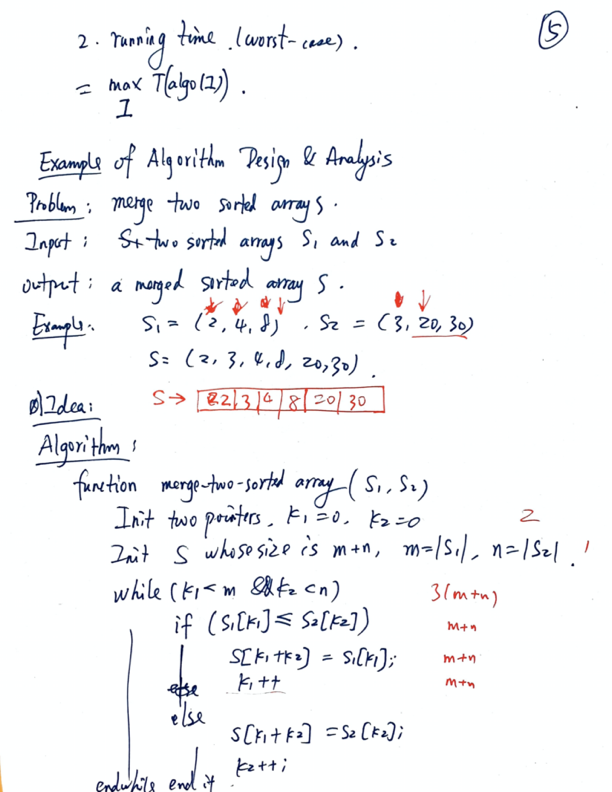 5
2. running time (worst-case).
= max T(algo(I)).
I
Example of Algorithm Design & Analysis
Problem: merge two sorted arrays.
Input: two sorted arrays S1 and S2
output: a merged sorted array S.
Example: S1 = (2, 4, 8). S2 = (3, 20, 30)
S = (2, 3, 4, 8, 20, 30).
S → 2 | 3 | 4 | 8 | 20 | 30
Idea:
Algorithm:
function merge-two-sorted array (S1, S2)
Init two pointers, K1=0, K2=0 2
Init S whose size is m+n, m=|S1|, n=|S2|. 1
while (K1<m && K2<n) 3(m+n)
if (S1[K1] ≤ S2[K2]) m+n
S[K1+K2] = S1[K1]; m+n
K1++ m+n
else
S[K1+K2] = S2[K2];
K2++;
endwhile end if